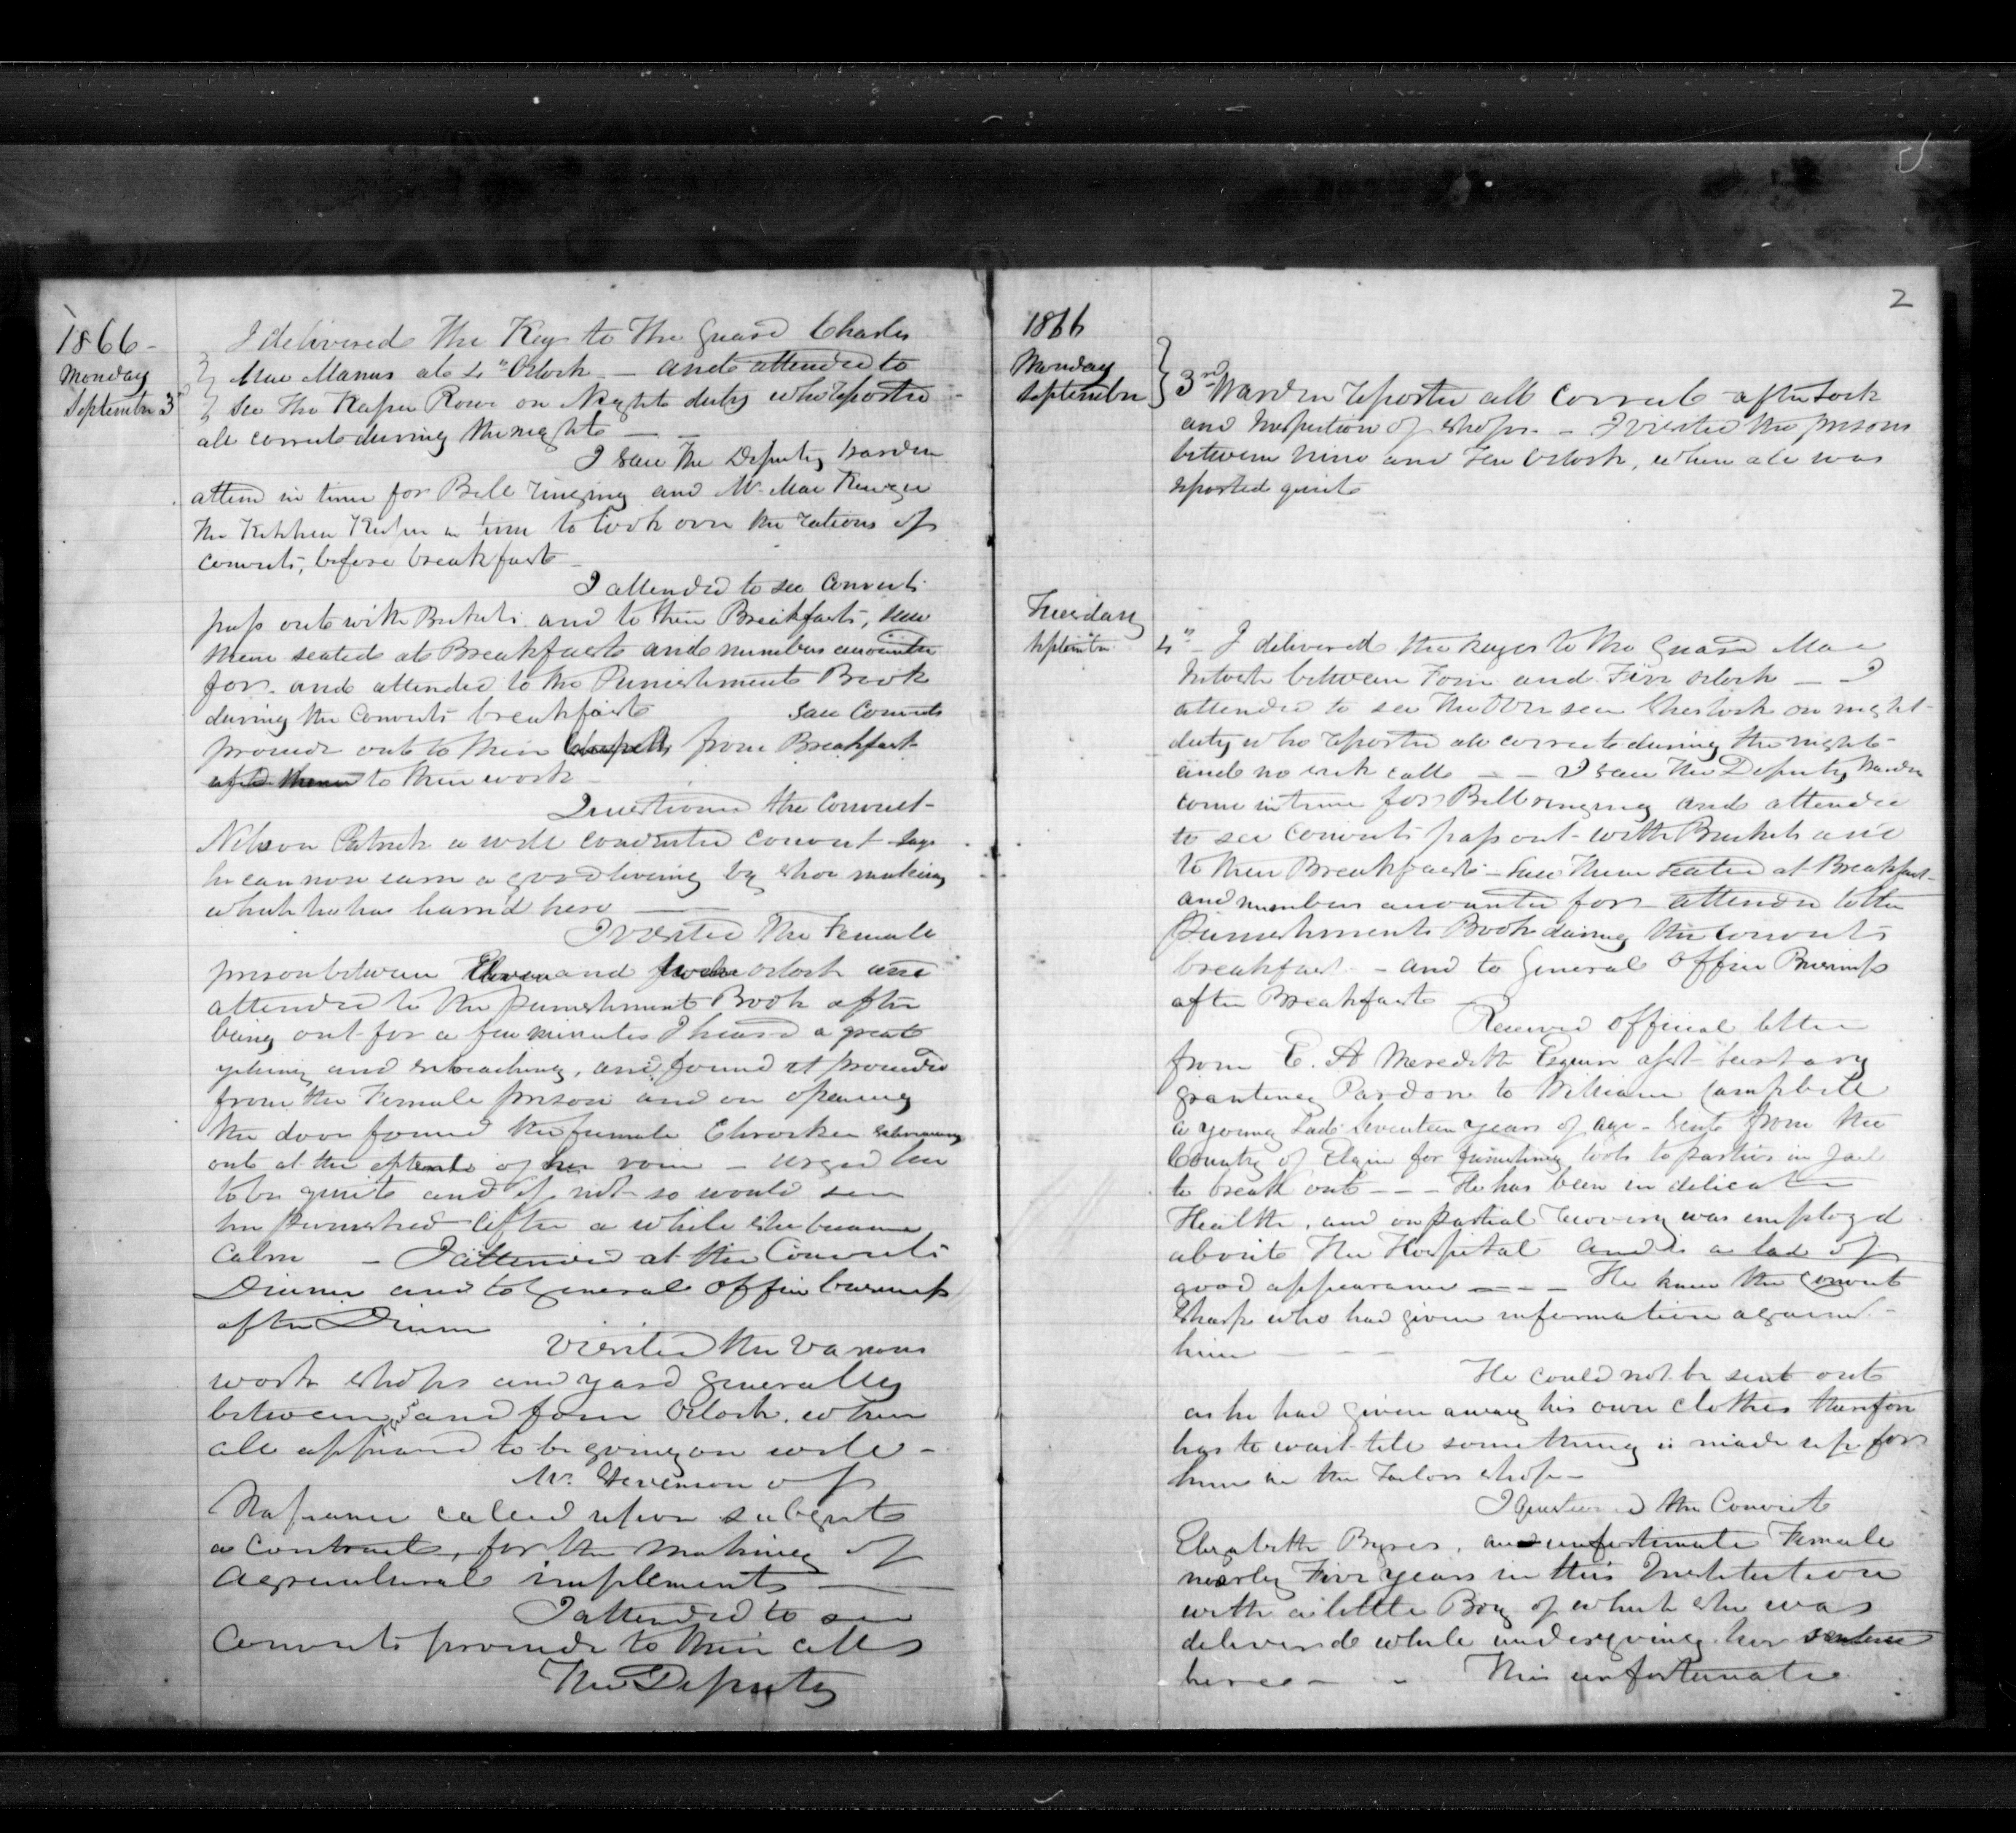 1866 -
Monday
September 3d
I delivered the Keys to the Guard Charles
Mac Manus at 4" Oclock - and attended to
see the Keeper Rowe on Night duty who reported
all correct during the night -
I saw the Deputy Warden
attend in time for Bell ringing and Mr. Mac
the Kitchen Keeper in time to look over the rations of
convicts, before breakfast -
I attended to see Convicts
pass out with Buckets and to their Breakfasts, saw
them seated at Breakfast and numbers accounted
for - and attended to the Punishment Book
during the Convicts breakfast saw Convicts
proceed out to their from Breakfast
to their work -
Questioned the Convict -
Nelson Patrick a well conducted convict - says
he can now earn a good living by shoe making
which he has learnd here -
I visited the Female
prison between Eleven and twelve oclock and
attended to the punishment Book after
being out for a few minutes I heard a great
yelling and screaching, and found it proceeded
from the Female prison and on opening
the door found the female screaming
out at the extent of her voice - urged her
to be quiet and if not so would see
her punished - After a while she became
calm - I attended at the Convicts
Dinner and to General office business
after Dinner
Visited the various
work shops and yard generally
between 3 and four Oclock, when
all appeared to be going on well -
Mr. Stevenson of
Napanee called upon subject
a Contract, for the making of
Agricultural implements -
I attended to see
Convicts proceed to their cells
The Deputy
2
1866
Monday
September
3rd Warden reported all correct after lock
and inspection of shops - I visited the prisons
between nine and ten Oclock, when all was
reported quiet
Tuesday
September
4" - I delivered the keys to the Guard Mac
Intosh between Four and Five oclock - I
attended to see the Overseer Sherlock on night
duty who reported all correct during the night -
and no sick call - - I saw the Deputy Warden
come in time for Bell ringing and attended
to see convicts pass out - with Buckets and
to their Breakfasts - saw them seated at Breakfast -
and numbers accounted for - attended to the
Punishment Book during the convicts
breakfast - and to General Office Business
after Breakfast -
Received official letter
from E. A Meredith Esquire asst Secretary
granting Pardon to William Campbell
a young Lad Seventeen years of age - Sent from the
County of Elgin for furnishing tools to parties in Jail
to break out - - - He has been in delicate
Health, and on partial recovery was employd
about the Hospital and is a lad of
good appearance - - - He knew the convict
Sharp who had given information against -
him - - -
He could not be sent out
as he had given away his own clothes therefore
has to wait till something is made up for
him in the Tailors shop -
I questioned the Convict
Elizabeth Byres, an unfortunate Female
nearly Five years in this Institution
with a little Boy of which she was
delivered while undergoing her sentence
here - - This unfortunate